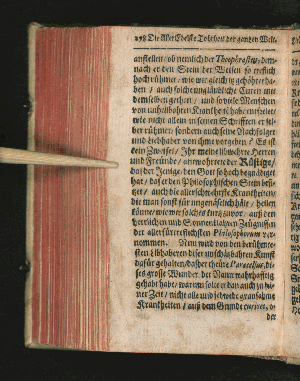 278 Die Aller Edelste Tohrheit der gantzen Welt.
anstellen / ob nemlich der Theophrastus, dem-
nach er den Stein der Weisen so trefflich
hoch rühmet / wie wer gleich itz gehöret ha-
ben / auch solche unglaubliche Curen mit
demselben gethan / und so viele Menschen
von unheilbahren Kranckheiten habe
wie nicht allein in seinen Schrifften er sel-
ber rühmet / sondern auch seine Nachfolger
und Liebhaber von ihme vorgeben / Es ist
kein Zweifel / Ihr meine liebwehrte Herren
und Freunde / antwohrtete der Rüstige /
daß der Jenige / den Gott so hoch begnädiget
hat / daß er den Philosophischen Stein besi-
tzet / auch die allerschreklichste Krankheiten /
die man sonst für ungenäßlich hält / heilen
könne / wie wer solches kurtz zuvor / auß den
herrlichen und Sonnenklahren Zeügnissen
der allerfürtreflichsten Philosophorum ver-
nommen. Wenn wird von den berühmte-
sten Liebhabern dieser unschätzbahren Kunst
dafür gehalten / daß der theüre Paracelsus, di-
ses grosse Wunder der Natur wahrhafftig
gehabt habe / warum solte er dan auch zu sei-
ner Zeit / nicht alle und jedwede grausahme
Krankheiten / auß dem Grunde curiret, o-
der